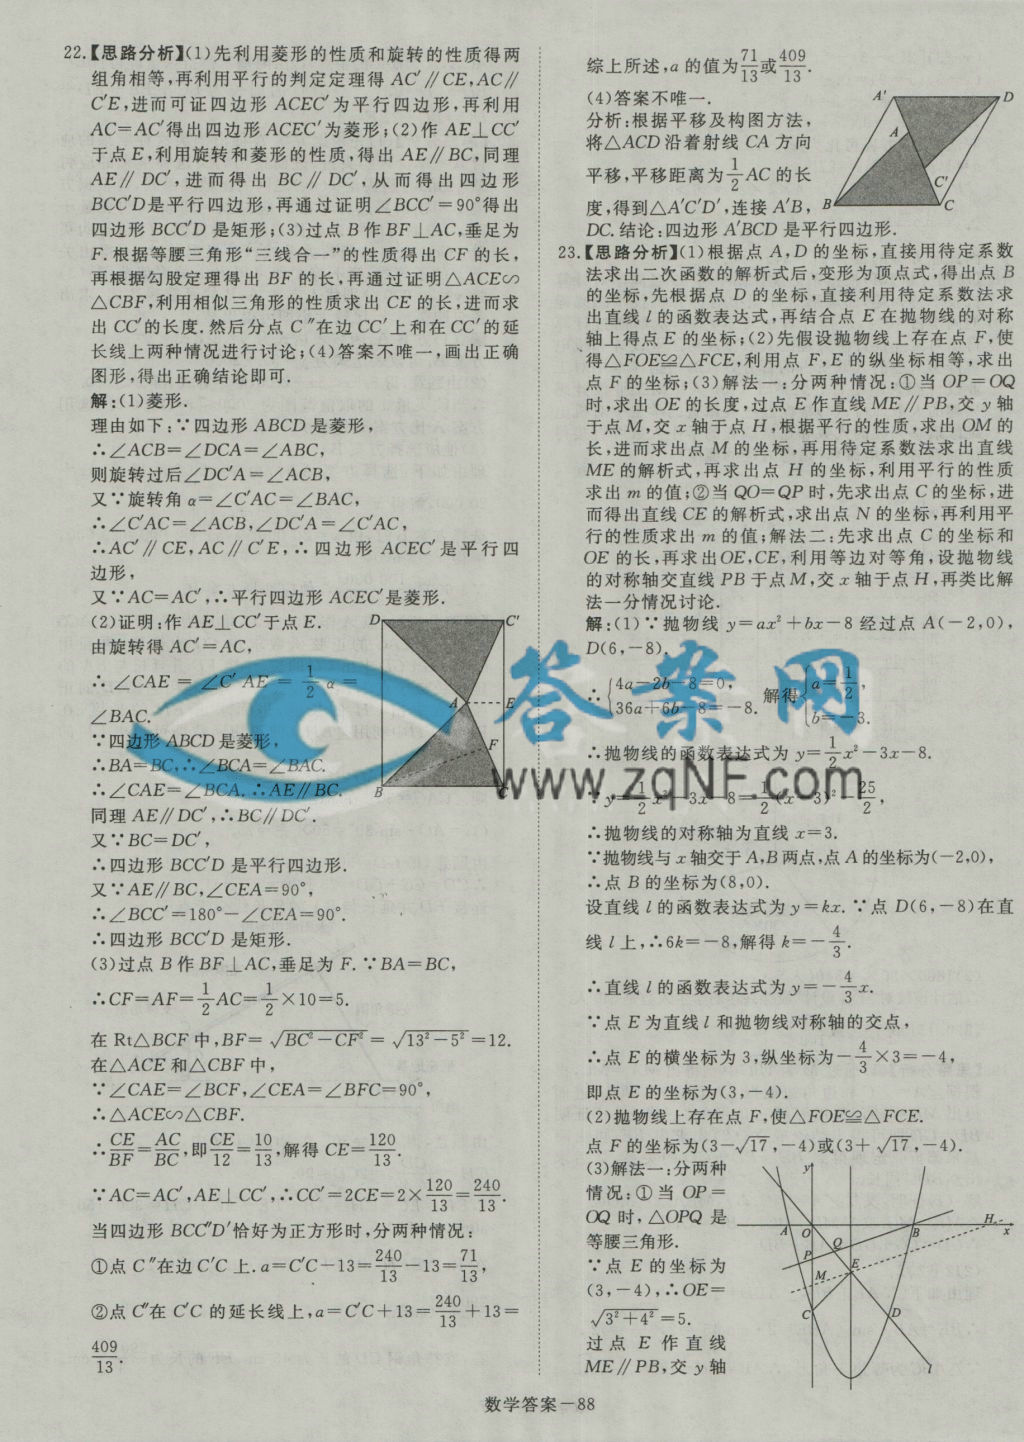 22.【思路分析】(1)先利用菱形的性质和旋转的性质得两
组角相等,再利用平行的判定定理得 AC′∥CE,AC∥
C′E,进而可证四边形 ACEC′为平行四边形,再利用
AC=AC′得出四边形 ACEC′为菱形;(2)作 AE⊥CC′
于点 E,利用旋转和菱形的性质,得出 AE∥BC,同理
AE∥DC′,进而得出 BC∥DC′,从而得出四边形
BCC′D是平行四边形,再通过证明∠BCC′=90°得出
四边形 BCC′D 是矩形;(3)过点 B 作 BF⊥AC,垂足为
F.根据等腰三角形“三线合一”的性质得出 CF 的长,
再根据勾股定理得出 BF 的长,再通过证明△ACE∽
△CBF,利用相似三角形的性质求出 CE 的长,进而求
出 CC′的长度.然后分点 C″在边 CC′上和在 CC′的延
长线上两种情况进行讨论;(4)答案不唯一,画出正确
图形,得出正确结论即可.
解:(1)菱形.
理由如下:∵四边形 ABCD 是菱形,
∴∠ACB=∠DCA=∠ABC,
则旋转过后∠DC′A=∠ACB,
又∵旋转角 α=∠C′AC=∠BAC,
∴∠C′AC=∠ACB,∠DC′A=∠C′AC,
∴AC′∥CE,AC∥C′E,∴四边形 ACEC′是平行四
边形,
又∵AC=AC′,∴平行四边形 ACEC′是菱形.
(2)证明:作 AE⊥CC′于点 E.
由旋转得 AC′=AC,
∴∠CAE=∠C′AE=1/2 α=
∠BAC.
∵四边形 ABCD 是菱形,
∴BA=BC,∴∠BCA=∠BAC.
∴∠CAE=∠BCA.∴AE∥BC.
同理 AE∥DC′,∴BC∥DC′.
又∵BC=DC′,
∴四边形 BCC′D 是平行四边形.
又∵AE∥BC,∠CEA=90°,
∴∠BCC′=180°-∠CEA=90°.
∴四边形 BCC′D 是矩形.
(3)过点 B 作 BF⊥AC,垂足为 F.∵BA=BC,
∴CF=AF=1/2 AC=1/2×10=5.
在 Rt△BCF 中,BF=√(BC²-CF²)=√(13²-5²)=12.
在△ACE 和△CBF 中,
∵∠CAE=∠BCF,∠CEA=∠BFC=90°,
∴△ACE∽△CBF.
∴CE/BF=AC/BC,即CE/12=10/13,解得 CE=120/13.
∵AC=AC′,AE⊥CC′,∴CC′=2CE=2×120/13=240/13.
当四边形 BCC″D′恰好为正方形时,分两种情况:
①点 C″在边 C′C 上.a=C′C-13=240/13-13=71/13,
②点 C″在 C′C 的延长线上,a=C′C+13=240/13+13=
409/13.
D C′ A E F B C
综上所述,a 的值为71/13或409/13.
(4)答案不唯一.
分析:根据平移及构图方法,
将△ACD 沿着射线 CA 方向
平移,平移距离为1/2 AC 的长
度,得到△A′C′D′,连接 A′B,
DC.结论:四边形 A′BCD 是平行四边形.
A′ D A C′ B C
23.【思路分析】(1)根据点 A,D 的坐标,直接用待定系数
法求出二次函数的解析式后,变形为顶点式,得出点 B
的坐标,先根据点 D 的坐标,直接利用待定系数法求
出直线 l 的函数表达式,再结合点 E 在抛物线的对称
轴上得点 E 的坐标;(2)先假设抛物线上存在点 F,使
得△FOE≌△FCE,利用点 F,E 的纵坐标相等,求出
点 F 的坐标;(3)解法一:分两种情况:①当 OP=OQ
时,求出 OE 的长度,过点 E 作直线 ME∥PB,交 y 轴
于点 M,交 x 轴于点 H,根据平行的性质,求出 OM 的
长,进而求出点 M 的坐标,再用待定系数法求出直线
ME 的解析式,再求出点 H 的坐标,利用平行的性质
求出 m 的值;②当 QO=QP 时,先求出点 C 的坐标,进
而得出直线 CE 的解析式,求出点 N 的坐标,再利用平
行的性质求出 m 的值;解法二:先求出点 C 的坐标和
OE 的长,再求出OE,CE,利用等边对等角,设抛物线
的对称轴交直线 PB 于点 M,交 x 轴于点 H,再类比解
法一分情况讨论.
解:(1)∵抛物线 y=ax²+bx-8 经过点 A(-2,0),
D(6,-8),
∴{4a-2b-8=0, 36a+6b-8=-8. 解得{a=1/2, b=-3.
∴抛物线的函数表达式为 y=1/2x²-3x-8.
∵y=1/2x²-3x-8=1/2(x-3)²-25/2,
∴抛物线的对称轴为直线 x=3.
∵抛物线与 x 轴交于 A,B 两点,点 A 的坐标为(-2,0),
∴点 B 的坐标为(8,0).
设直线 l 的函数表达式为 y=kx.∵点 D(6,-8)在直
线 l 上,∴6k=-8,解得 k=-4/3.
∴直线 l 的函数表达式为 y=-4/3x.
∵点 E 为直线 l 和抛物线对称轴的交点,
∴点 E 的横坐标为 3,纵坐标为-4/3×3=-4,
即点 E 的坐标为(3,-4).
(2)抛物线上存在点 F,使△FOE≌△FCE.
点 F 的坐标为(3-√17,-4)或(3+√17,-4).
(3)解法一:分两种
情况:①当 OP=
OQ 时,△OPQ 是
等腰三角形.
∵点 E 的坐标为
(3,-4),∴OE=
√(3²+4²)=5.
过点 E 作直线
ME∥PB,交 y 轴
y A O B H x P Q M E C D l
答案网
www.zqNF.com
数学答案-88